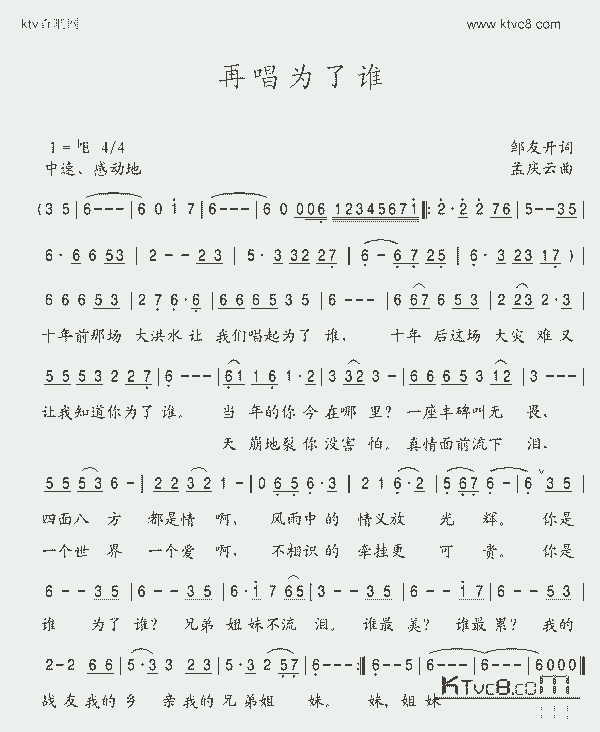 ktv在线网 www.ktvc8.com
再唱为了谁
1=♭E 4/4 邹友开词
中速、感动地 孟庆云曲
(3 5 | 6 - - - | 6 0 i 7 | 6 - - - | 6 0 006 12345671 ‖: 2· 2 2 76 | 5 - - 35 |
6· 6 6 53 | 2 - - 23 | 5· 3 32 27 | 6 - 67 25 | 6· 3 23 17 ) |
6 6 6 5 3 | 2 7 6· 6 | 6 6 6 5 3 5 | 6 - - - | 6 67 6 5 3 | 2 23 2· 3 |
十年前那场 大洪水让 我们唱起为了 谁, 十年 后这场 大灾 难又
5 5 5 3 2 2 7 | 6 - - - | 61 1 6 1· 2 | 3 32 3 - | 6 6 6 5 3 12 | 3 - - - |
让我知道你为了 谁。 当 年的你今在哪 里? 一座丰碑叫无 畏,
天 崩地裂你没害 怕。真情面前流下 泪。
5 5 5 3 6 - | 2 2 3 2 1 - | 0 6 5 6· 3 | 2 1 6· 2 | 5 67 6 - | 6 ᵛ 3 5 |
四面八 方 都是情 啊, 风雨中的 情义放 光 辉。 你是
一个世 界 一个爱 啊, 不相识的 牵挂更 可 贵。 你是
6 - - 3 5 | 6 - - 3 5 | 6· i 7 65 | 3 - - 3 5 | 6 - - i 7 | 6 - - 5 3 |
谁 为了 谁? 兄弟 姐妹不流 泪。 谁最 美? 谁最 累? 我的
2 - 2 6 6 | 5· 3 3 2 3 | 5· 3 2 57 | 6 - - - :‖ 6 - - 5 | 6 - - - | 6 - - - | 6000 ‖
战友我的乡 亲我的兄弟姐 妹。 妹,姐妹
KTvc8.com